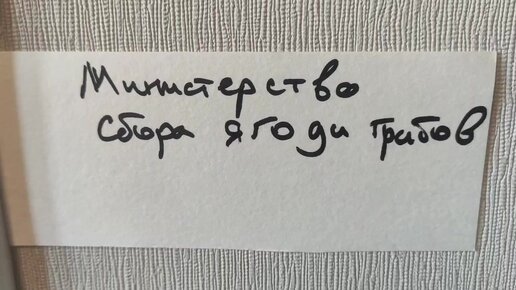 Министерство
сбора ягод и грибов